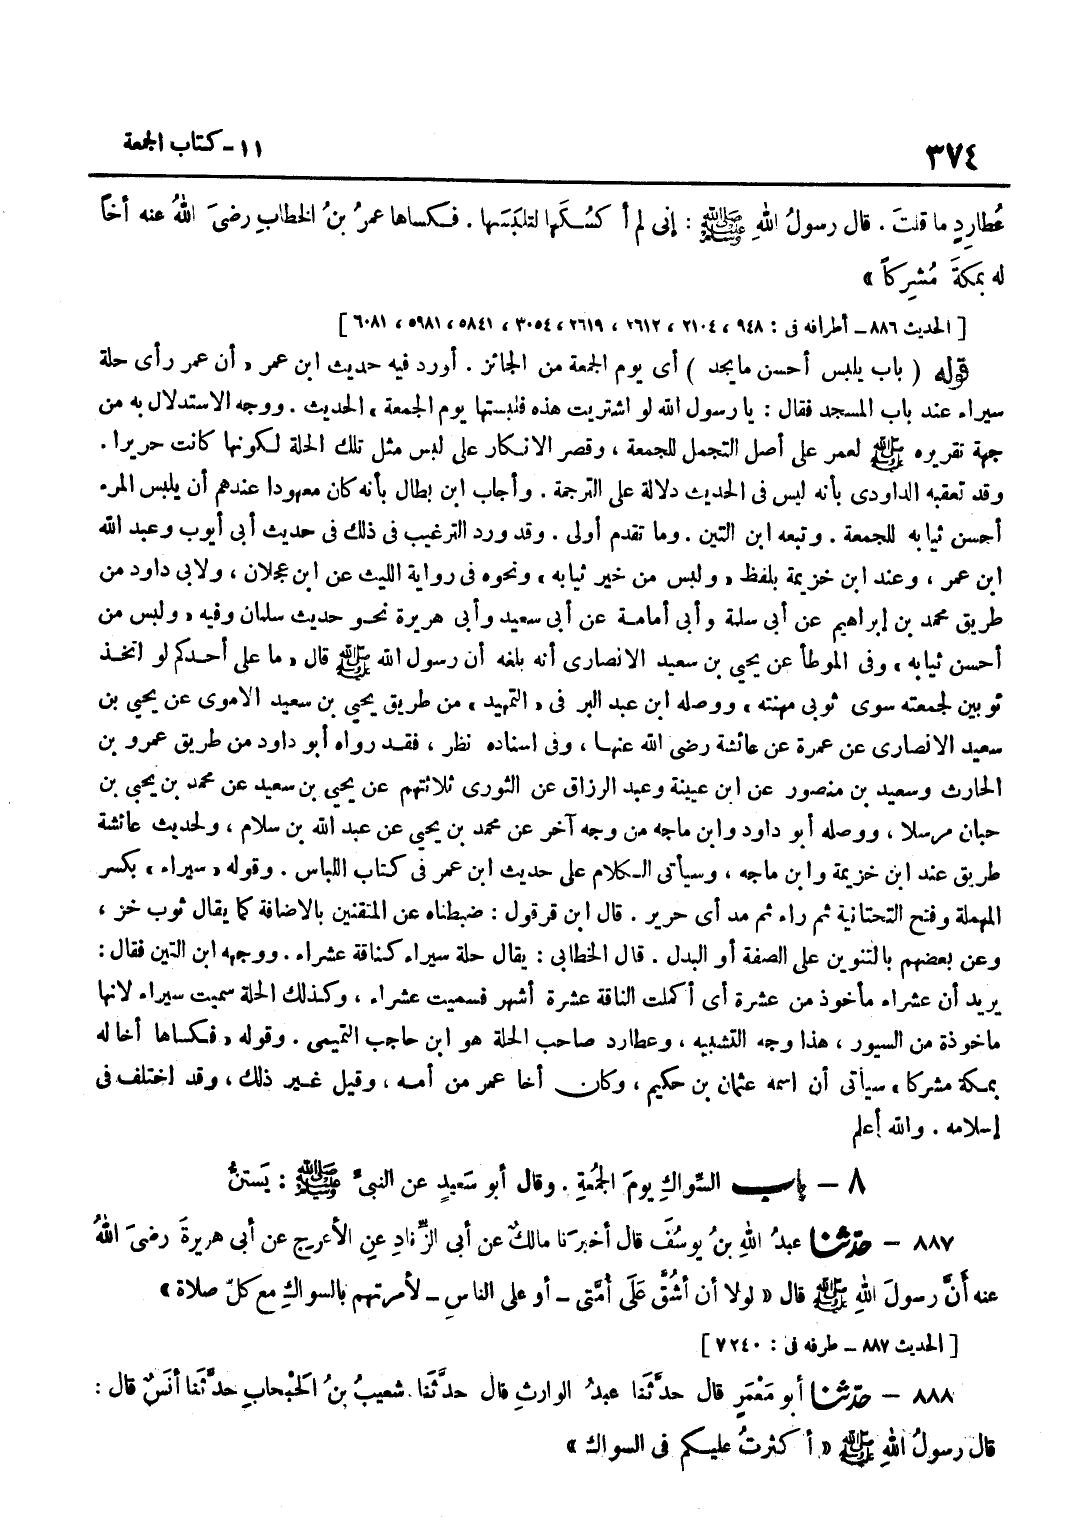 ٣٧٤
١١ - كتاب الجمعة
عُطارِدٍ ما قلتَ . قال رسولُ اللهِ ﷺ : إنى لم أكسُكَها لتلبَسَها . فكساها عمرُ بنُ الخطابِ رضىَ اللهُ عنه أخاً
له بمكةَ مُشرِكاً »
[ الحديث ٨٨٦ - أطرافه فى : ٩٤٨ ، ٢١٠٤ ، ٢٦١٢ ، ٢٦١٩ ، ٣٠٥٤ ، ٥٨٤١ ، ٥٩٨١ ، ٦٠٨١ ]
قوله ( باب يلبس أحسن ما يجد ) أى يوم الجمعة من الجائز . أورد فيه حديث ابن عمر « أن عمر رأى حلة
سيراء عند باب المسجد فقال : يا رسول الله لو اشتريت هذه فلبستها يوم الجمعة » الحديث . ووجه الاستدلال به من
جهة تقريره ﷺ لعمر على أصل التجمل للجمعة ، وقصر الانكار على لبس مثل تلك الحلة لكونها كانت حريرا .
وقد تعقبه الداودى بأنه ليس فى الحديث دلالة على الترجمة . وأجاب ابن بطال بأنه كان معهودا عندهم أن يلبس المرء
أحسن ثيابه للجمعة . وتبعه ابن التين . وما تقدم أولى . وقد ورد الترغيب فى ذلك فى حديث أبى أيوب وعبد الله
ابن عمر ، وعند ابن خزيمة بلفظ « ولبس من خير ثيابه » ونحوه فى رواية الليث عن ابن عجلان ، ولابى داود من
طريق محمد بن إبراهيم عن أبى سلمة وأبى أمامة عن أبى سعيد وأبى هريرة نحو حديث سلمان وفيه « ولبس من
أحسن ثيابه » وفى الموطأ عن يحيى بن سعيد الانصارى أنه بلغه أن رسول الله ﷺ قال « ما على أحدكم لو اتخذ
ثوبين لجمعته سوى ثوبى مهنته » ووصله ابن عبد البر فى « التمهيد » من طريق يحيى بن سعيد الاموى عن يحيى بن
سعيد الانصارى عن عمرة عن عائشة رضى الله عنها ، وفى اسناده نظر ، فقد رواه أبو داود من طريق عمرو بن
الحارث وسعيد بن منصور عن ابن عيينة وعبد الرزاق عن الثورى ثلاثتهم عن يحيى بن سعيد عن محمد بن يحيى بن
حبان مرسلا ، ووصله أبو داود وابن ماجه من وجه آخر عن محمد بن يحيى عن عبد الله بن سلام ، ولحديث عائشة
طريق عند ابن خزيمة وابن ماجه ، وسيأتى الكلام على حديث ابن عمر فى كتاب اللباس . وقوله « سيراء » بكسر
المهملة وفتح التحتانية ثم راء ثم مد أى حرير . قال ابن قرقول : ضبطناه عن المتقنين بالاضافة كما يقال ثوب خز ،
وعن بعضهم بالتنوين على الصفة أو البدل . قال الخطابى : يقال حلة سيراء كناقة عشراء . ووجهه ابن التين فقال :
يريد أن عشراء مأخوذ من عشرة أى أكملت الناقة عشرة أشهر فسميت عشراء ، وكذلك الحلة سميت سيراء لانها
ماخوذة من السيور ، هذا وجه التشبيه ، وعطارد صاحب الحلة هو ابن حاجب التميمى . وقوله « فكساها أخا له
بمكة مشركا » سيأتى أن اسمه عثمان بن حكيم ، وكان أخا عمر من أمه ، وقيل غير ذلك ، وقد اختلف فى
إسلامه . والله أعلم
٨ - باب السِّواكِ يومَ الجُمعةِ . وقال أبو سَعيدٍ عن النبىِّ ﷺ : يَستنُّ
٨٨٧ - حدّثنا عبدُ اللهِ بنُ يوسُفَ قال أخبرَنا مالكٌ عن أبى الزِّنادِ عنِ الأعرجِ عن أبى هريرةَ رضىَ اللهُ
عنه أَنَّ رسولَ اللهِ ﷺ قال « لولا أن أشُقَّ عَلَى أُمَّتى - أو على الناسِ - لأمرتهم بالسواكِ مع كلّ صلاة »
[ الحديث ٨٨٧ - طرفه فى : ٧٢٤٠ ]
٨٨٨ - حدّثنا أبو مَعْمَرٍ قال حدَّثَنا عبدُ الوارثِ قال حدَّثَنا شعيبُ بنُ الحَبْحابِ حدَّثَنا أنَسٌ قال :
قال رسولُ اللهِ ﷺ « أكثرتُ عليكم فى السواك »